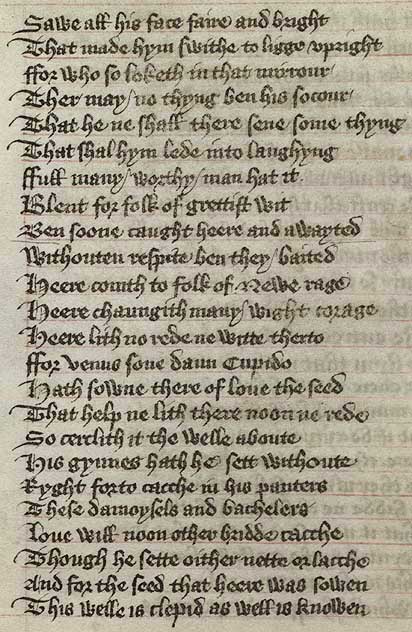 Sawe all his face faire and bright
That made hym swithe to ligge vpright
ffor who so loketh in that mirrour
Ther may / no thyng ben his socour
That he ne shall there sene some thyng
That shal hym lede into laughyng
ffull many / worthy / man hat it
Blent for folk of grettist wit
Ben soone caught heere and awayted
Withouten respite ben they / baited
Heere comth to folk of Newe rage
Heere chaungith many / wight corage
Heere lith no rede ne witte therto
ffor venus sone daun Cupido
Hath sowne there of loue the seed
That help ne lith there noon ne rede
So cerclith it the welle aboute
His gynnes hath he sett withoute
Ryght forto cacche in his panters
These damoysels and bachelers
Loue will noon other bridde cacche
Though he sette either nette or lacche
And for the seed that heere was sowen
This welle is clepid as well is knowen